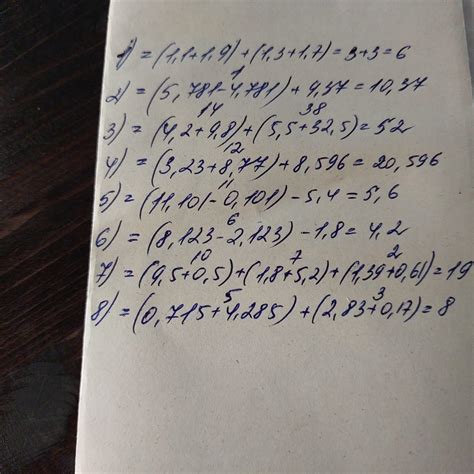 1) = (1,1+1,9)+(1,3+1,7)=3+3=6
1
2) = (5,781-4,781)+9,37=10,37
14 38
3) = (4,2+9,8)+(5,5+32,5)=52
12
4) = (3,23+8,77)+8,596=20,596
11
5) = (11,101-0,101)-5,4=5,6
6
6) = (8,123-2,123)-1,8=4,2
10 7 2
7) = (9,5+0,5)+(1,8+5,2)+(1,39+0,61)=19
5 3
8) = (0,715+4,285)+(2,83+0,17)=8